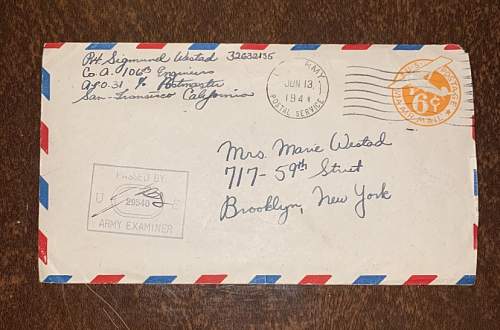 Pvt. Sigmund Westad 32632135
Co. A. 106th Engineers
A.P.O. 31, c/o Postmaster
San-Francisco California
ARMY
JUN 13
194
POSTAL SERVICE
U.S. POSTAGE
6¢
VIA AIR MAIL
Mrs. Marie Westad
717-59th Street
Brooklyn, New York
PASSED BY
U S
29540
ARMY EXAMINER